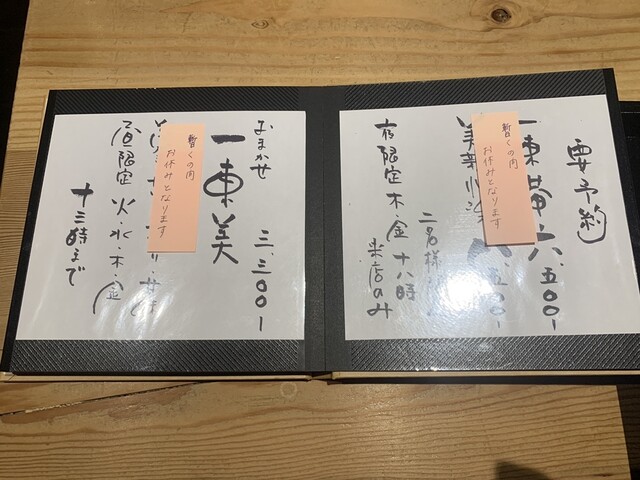 要予約
一東帯 六、五〇〇ー
五〇〇ー
二名様
夜限定 木・金 十八時
来店のみ
暫くの間
お休みとなります
おまかせ 三、三〇〇ー
一東美
昼限定 火・水・木・金
十三時まで
暫くの間
お休みとなります